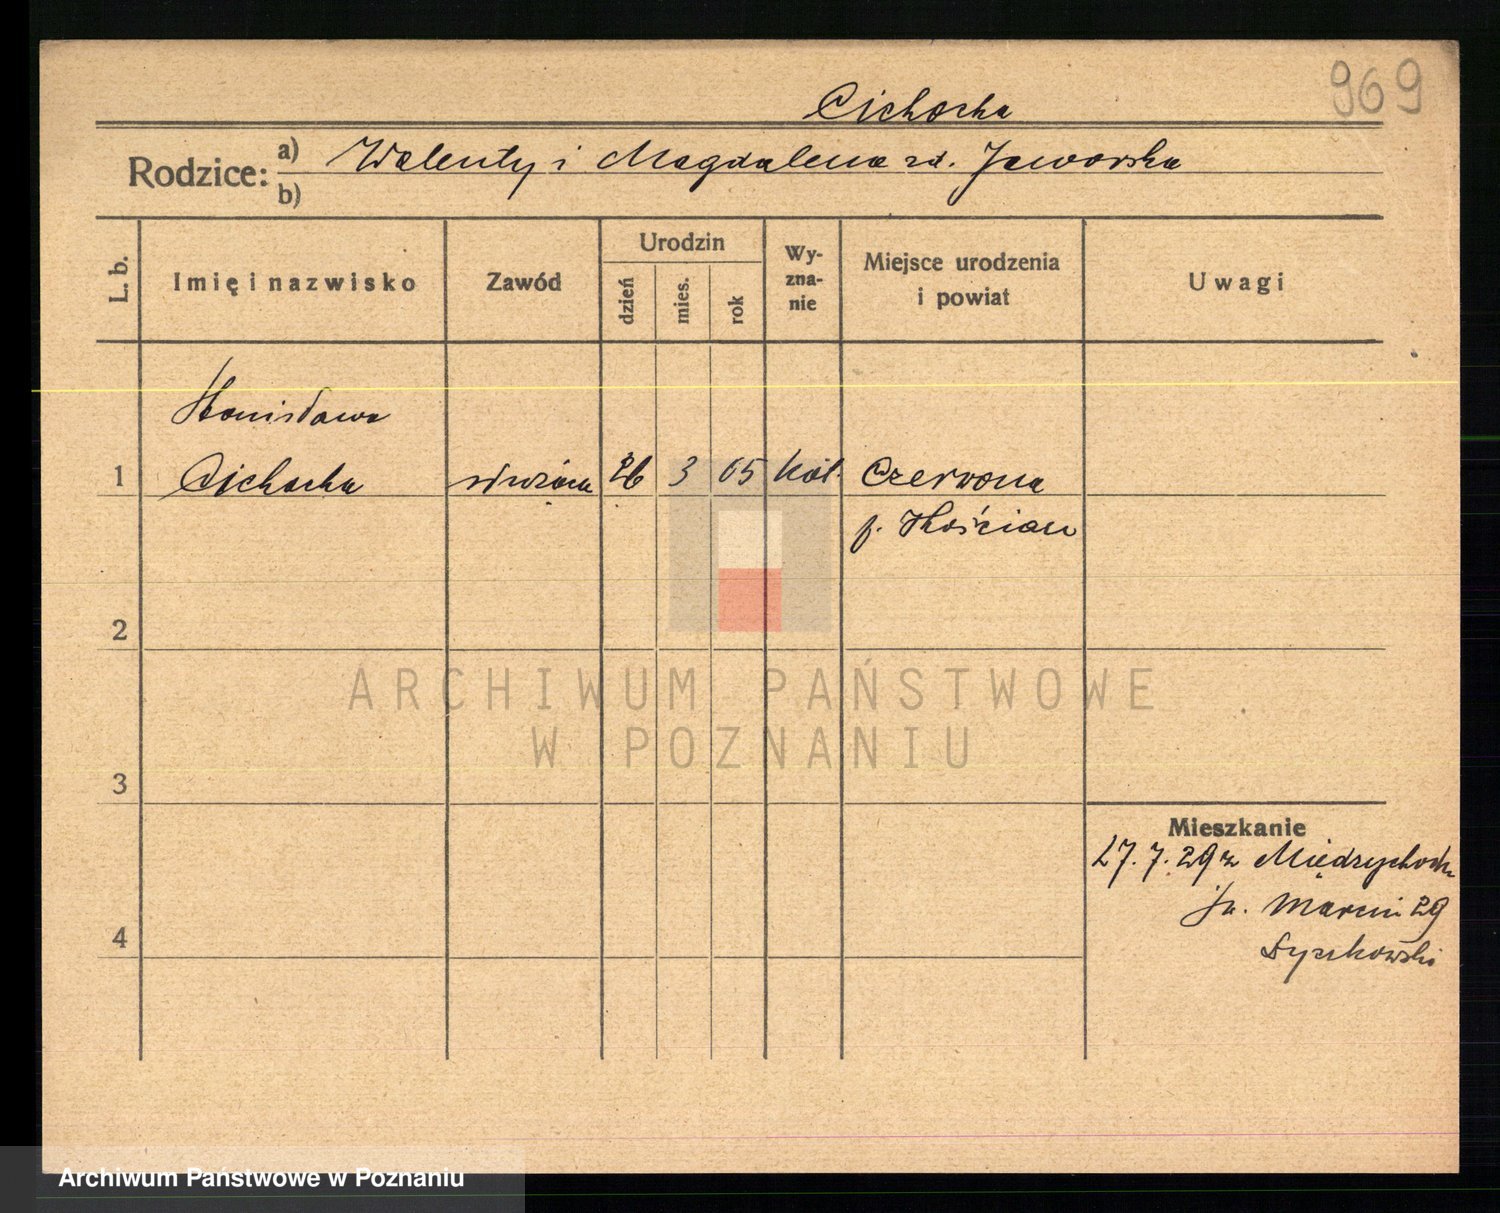 969
Cichocka
Rodzice: a) Walenty i Magdalena zd. Jaworska
b)
L. b.
Imię i nazwisko
Zawód
Urodzin
dzień
mies.
rok
Wy-
zna-
nie
Miejsce urodzenia
i powiat
Uwagi
Stanisława
1 Cichocka służąca 26 3 05 kat. Czerwona
p. Kościan
2
3
4
Mieszkanie
27. 7. 29 z Międzychodu
św. Marcin 29
Dyszkowski
ARCHIWUM PAŃSTWOWE
W POZNANIU
Archiwum Państwowe w Poznaniu